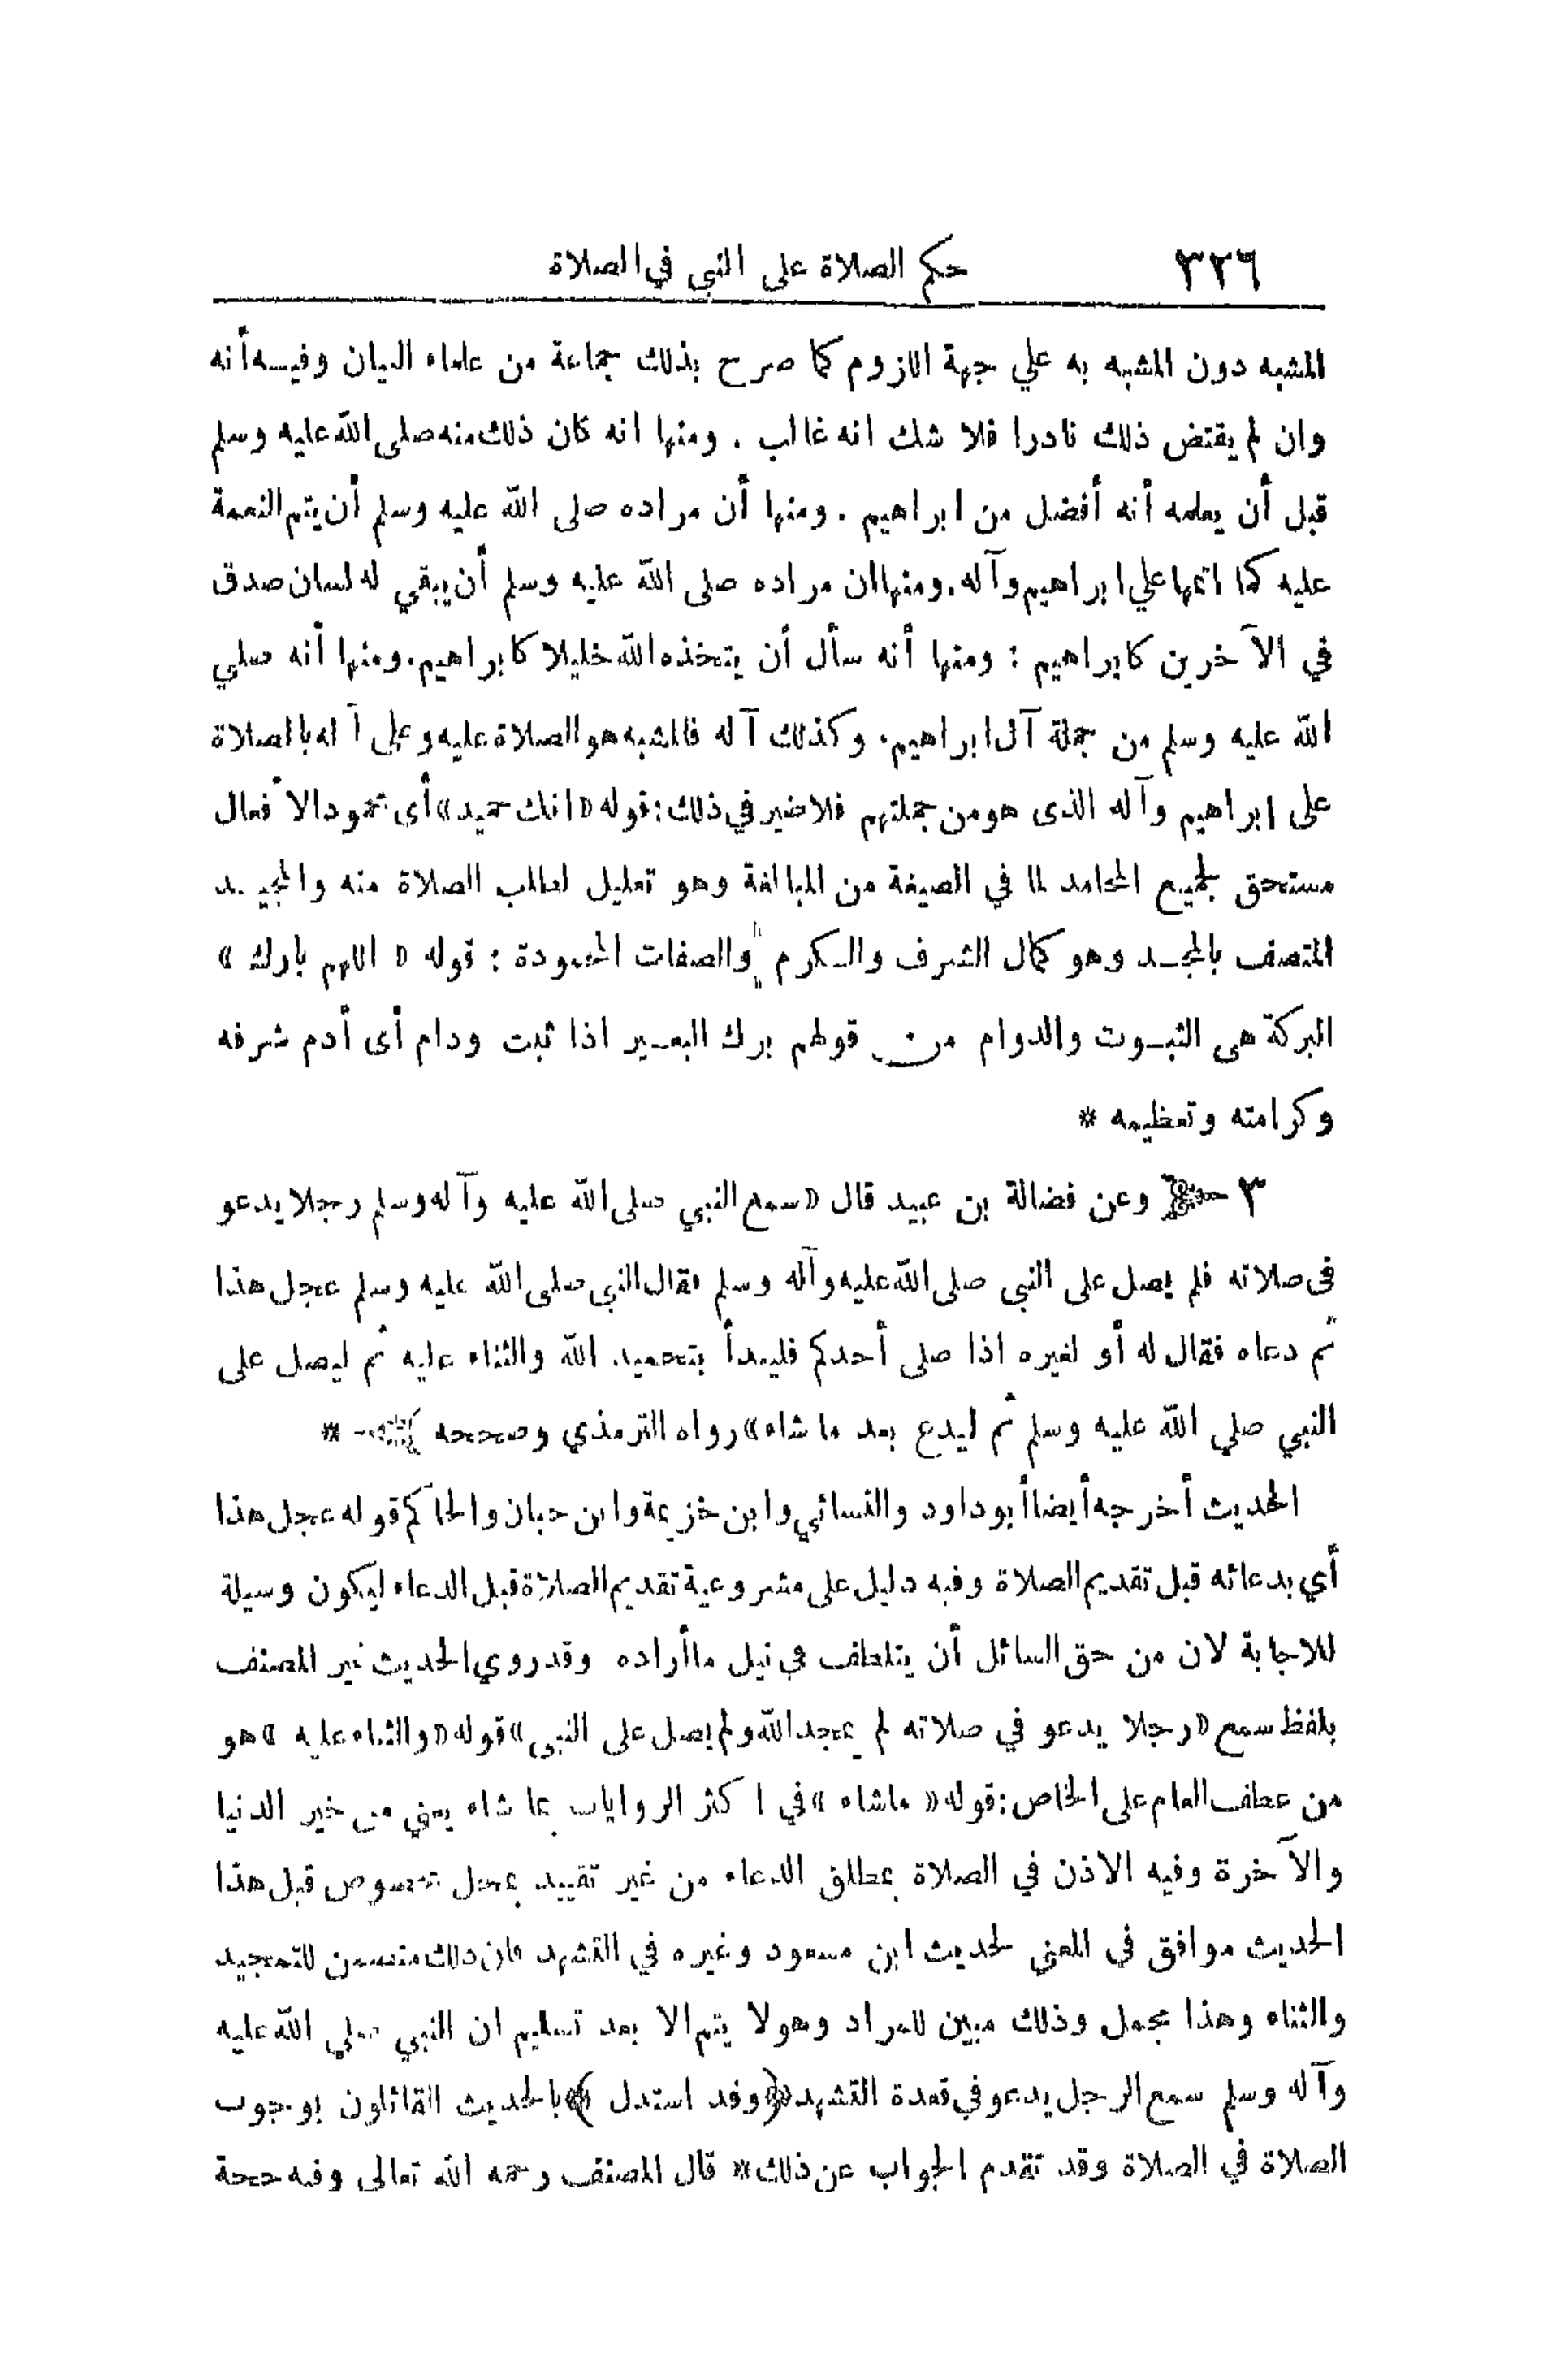 ٣٢٦ حكم الصلاة على النبي في الصلاة
المشبه دون المشبه به علي جهة اللزوم كما صرح بذلك جماعة من علماء البيان وفيه أنه
وان لم يقتض ذلك نادرا فلا شك انه غالب . ومنها انه كان ذلك منه صلى الله عليه وسلم
قبل أن يعلمه أنه أفضل من ابراهيم . ومنها أن مراده صلى الله عليه وسلم أن يتم النعمة
عليه كما اتمها علي ابراهيم وآله . ومنها ان مراده صلى الله عليه وسلم أن يبقي له لسان صدق
في الآخرين كابراهيم : ومنها أنه سأل أن يتخذه الله خليلا كابراهيم . ومنها أنه صلي
الله عليه وسلم من جملة آل ابراهيم . وكذلك آله فالمشبه هو الصلاة عليه وعلى آله بالصلاة
على ابراهيم وآله الذى هو من جملتهم فلا ضير في ذلك : قوله «انك حميد» أى محمود الأفعال
مستحق لجميع المحامد لما في الصيغة من المبالغة وهو تعليل لطلب الصلاة منه والمجيد
المتصف بالمجد وهو كمال الشرف والكرم والصفات المحمودة : قوله « اللهم بارك »
البركة هى الثبوت والدوام من قولهم برك البعير اذا ثبت ودام أى أدم شرفه
وكرامته وتعظيمه *
٣ وعن فضالة بن عبيد قال «سمع النبي صلى الله عليه وآله وسلم رجلا يدعو
فى صلاته فلم يصل على النبى صلى الله عليه وآله وسلم فقال النبى صلى الله عليه وسلم عجل هذا
ثم دعاه فقال له أو لغيره اذا صلى أحدكم فليبدأ بتحميد الله والثناء عليه ثم ليصل على
النبي صلي الله عليه وسلم ثم ليدع بعد ما شاء» رواه الترمذي وصححه *
الحديث أخرجه أيضا أبو داود والنسائي وابن خزيمة وابن حبان والحاكم قوله عجل هذا
أي بدعائه قبل تقديم الصلاة وفيه دليل على مشروعية تقديم الصلاة قبل الدعاء ليكون وسيلة
للاجابة لان من حق السائل أن يتلطف في نيل ما أراده وقد روي الحديث غير المصنف
بلفظ سمع «رجلا يدعو في صلاته لم يمجد الله ولم يصل على النبى» قوله «والثناء عليه » هو
من عطف العام على الخاص : قوله « ماشاء » في اكثر الروايات بما شاء يعني من خير الدنيا
والآخرة وفيه الاذن في الصلاة بمطلق الدعاء من غير تقييد بمحل مخصوص قبل هذا
الحديث موافق في المعنى لحديث ابن مسعود وغيره في التشهد فان ذلك متضمن للتمجيد
والثناء وهذا مجمل وذلك مبين للمراد وهو لا يتم الا بعد تسليم ان النبي صلي الله عليه
وآله وسلم سمع الرجل يدعو في قعدة التشهد ﴿وقد استدل﴾ بالحديث القائلون بوجوب
الصلاة في الصلاة وقد تقدم الجواب عن ذلك * قال المصنف رحمه الله تعالى وفيه حجة